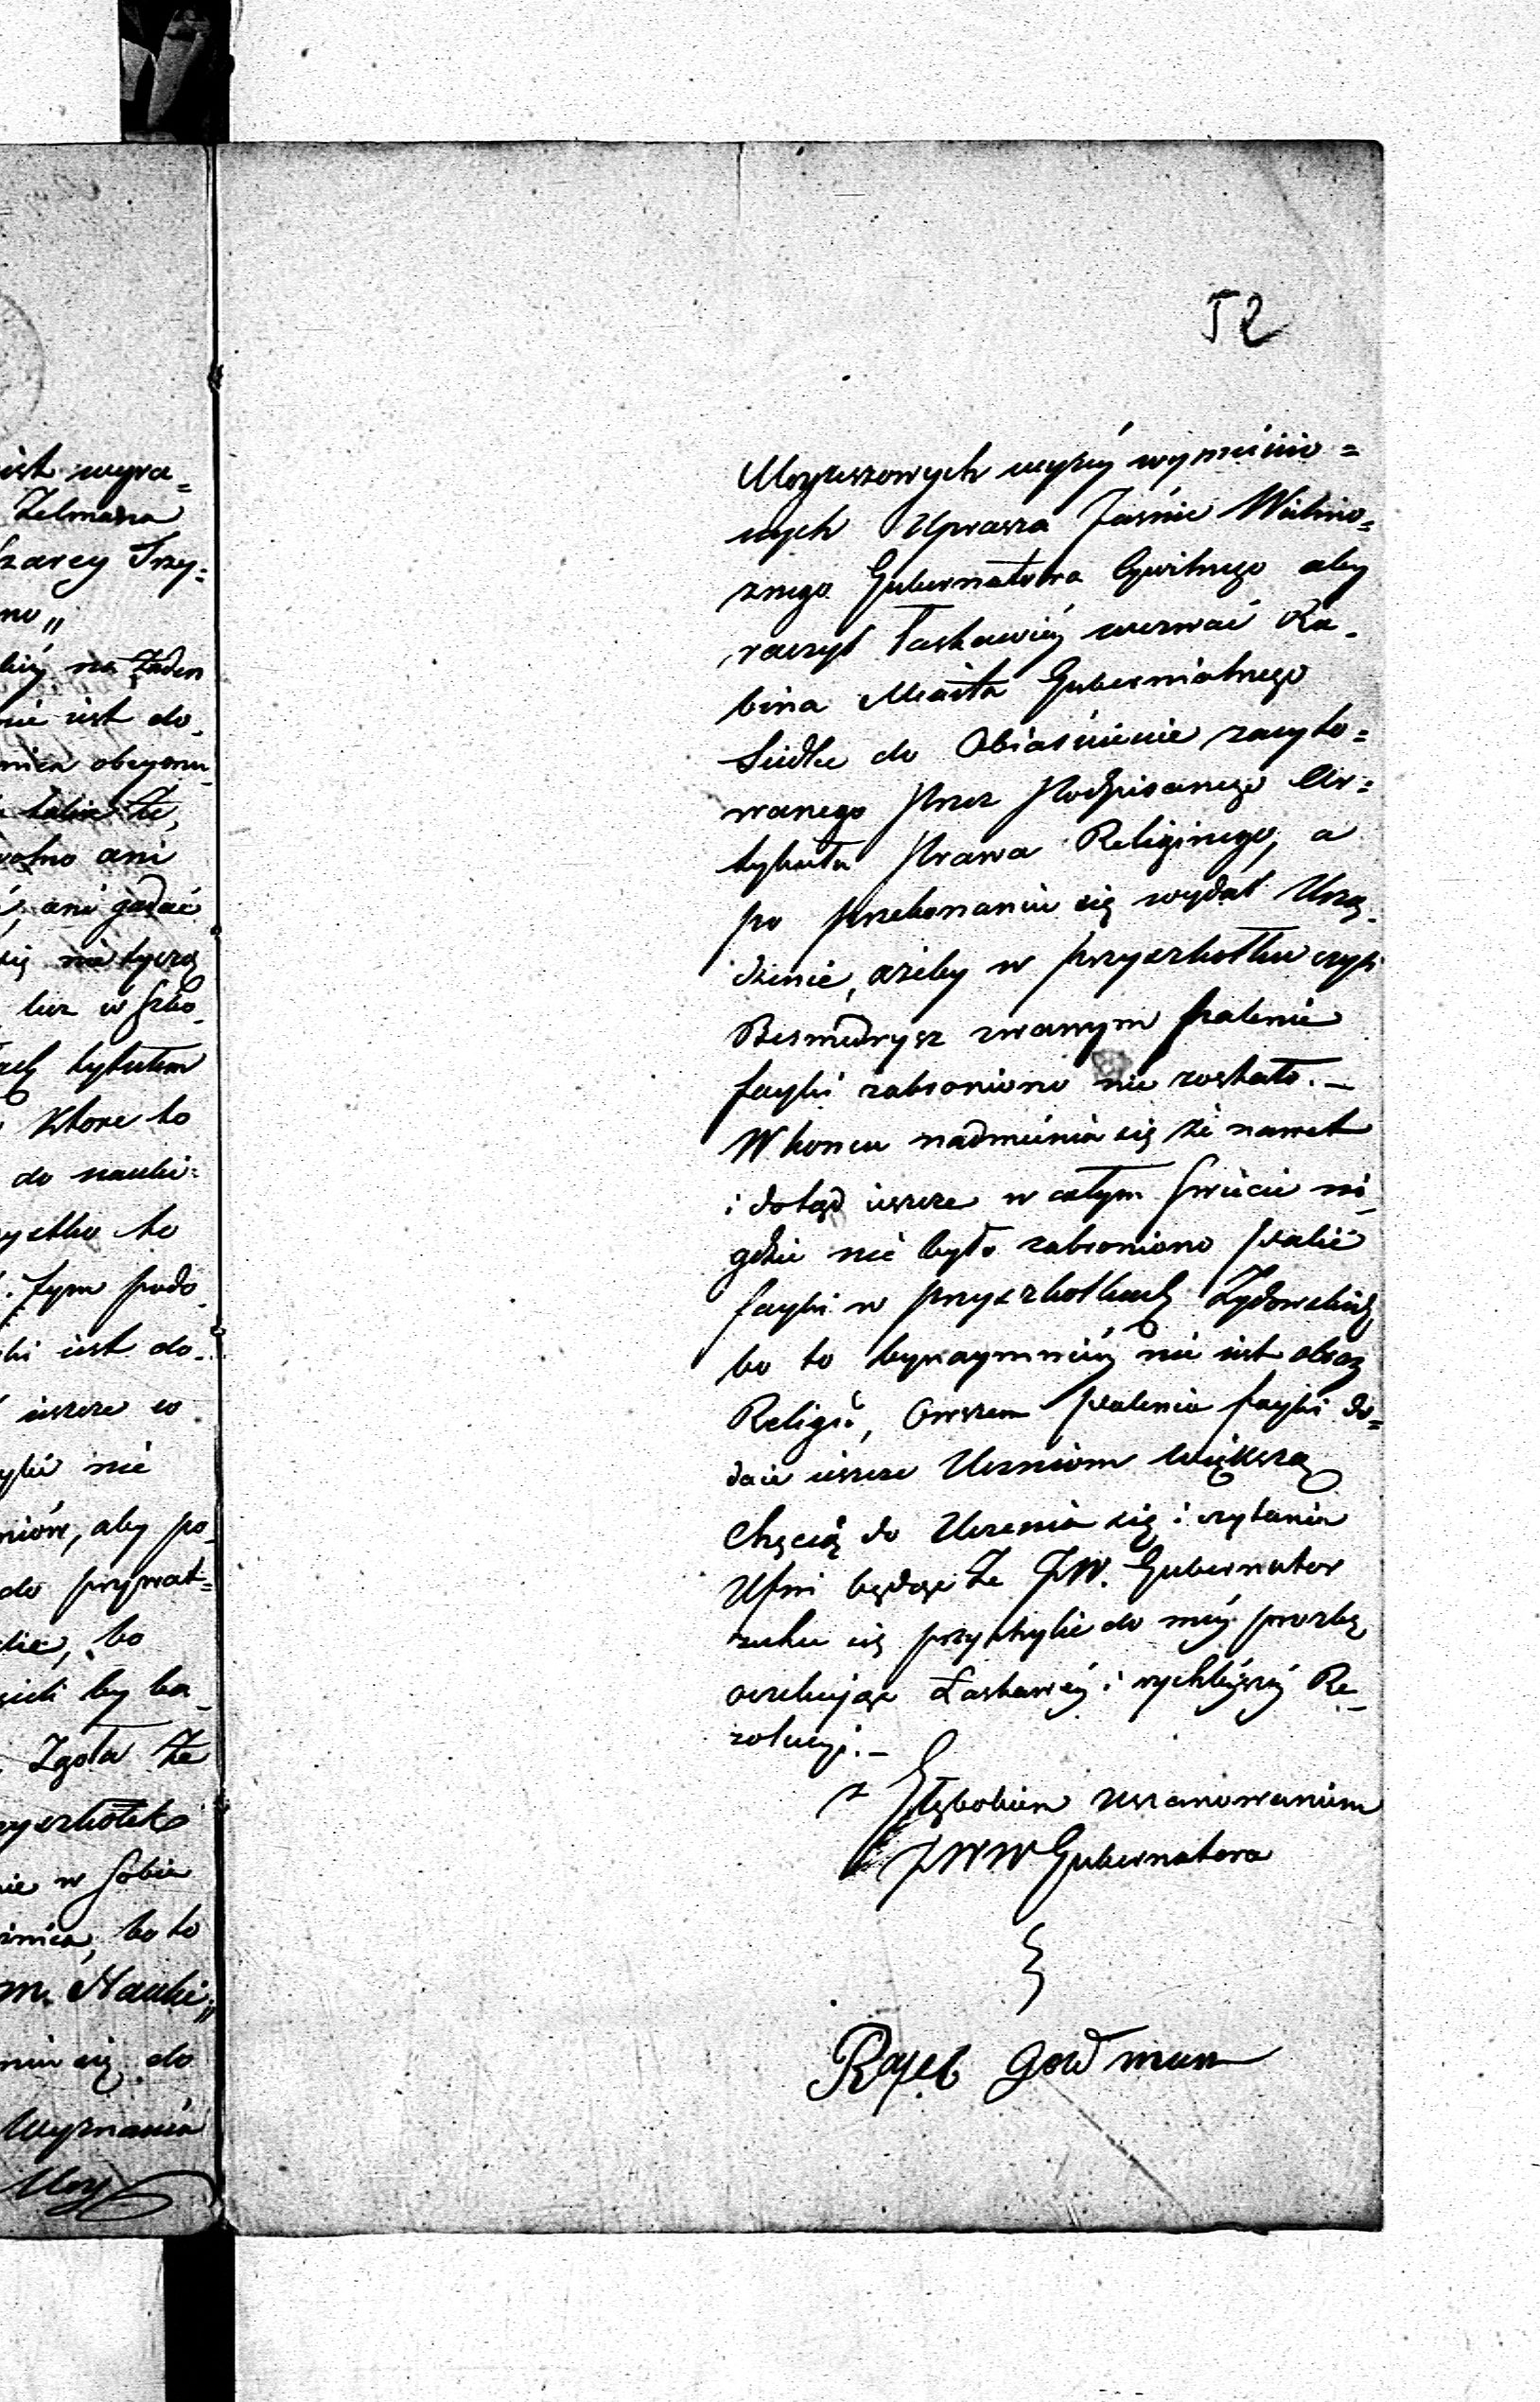 52
Moyzeszowych wyżéy wymienio=
nych Uprasza Jaśnie Wielmo=
żnego Gubernatora Cywilnego aby
raczył łaskawiéy wezwać Ra-
bina Miasta Gubernialnego
Siedlce do Obiaśnienie zacyto=
wanego Przez Podpisanego Ar=
tykułu Prawa Religinego, a
po przekonaniu się wydał Urzą-
dzenie, ażeby w przyszkołku czyli
Besmedrysz zwanym palenie
fayki zabronione nie zostało. —
W koncu nadmienia się że nawet
i dotąd ieszcze w całym świecie ni-
gdzie nie było zabroniono palić
fayki w przyszkołkach Żydowskich
bo to bynaymniéy nie iest obrazą
Religii, Owszem palenia fayki do=
daie ieszcze Uczniom większą
Chęcią do Uczenia się i czytania
Ufni będąc że JW. Gubernator
zechce się przychylić do méy prozbę
oczekując Łaskawéy i rychléyszéy Re-
zolucyi. —
z Głębokiem uszanowaniem
JWW Gubernatora
iest wyra=
Zelmana
Trzy=
no„
na żaden
nie iest do-
ani
ani gadać
się nie tyczą
w szko-
tytułem
Ktore to
do nauki
to
tym podo-
iest do-
ieszcze w
nie
aby po-
do prywat=
bo
by ba-
Zgoła że
w sobie
bo to
m. Nauki„
się do
Wyznania
Moy